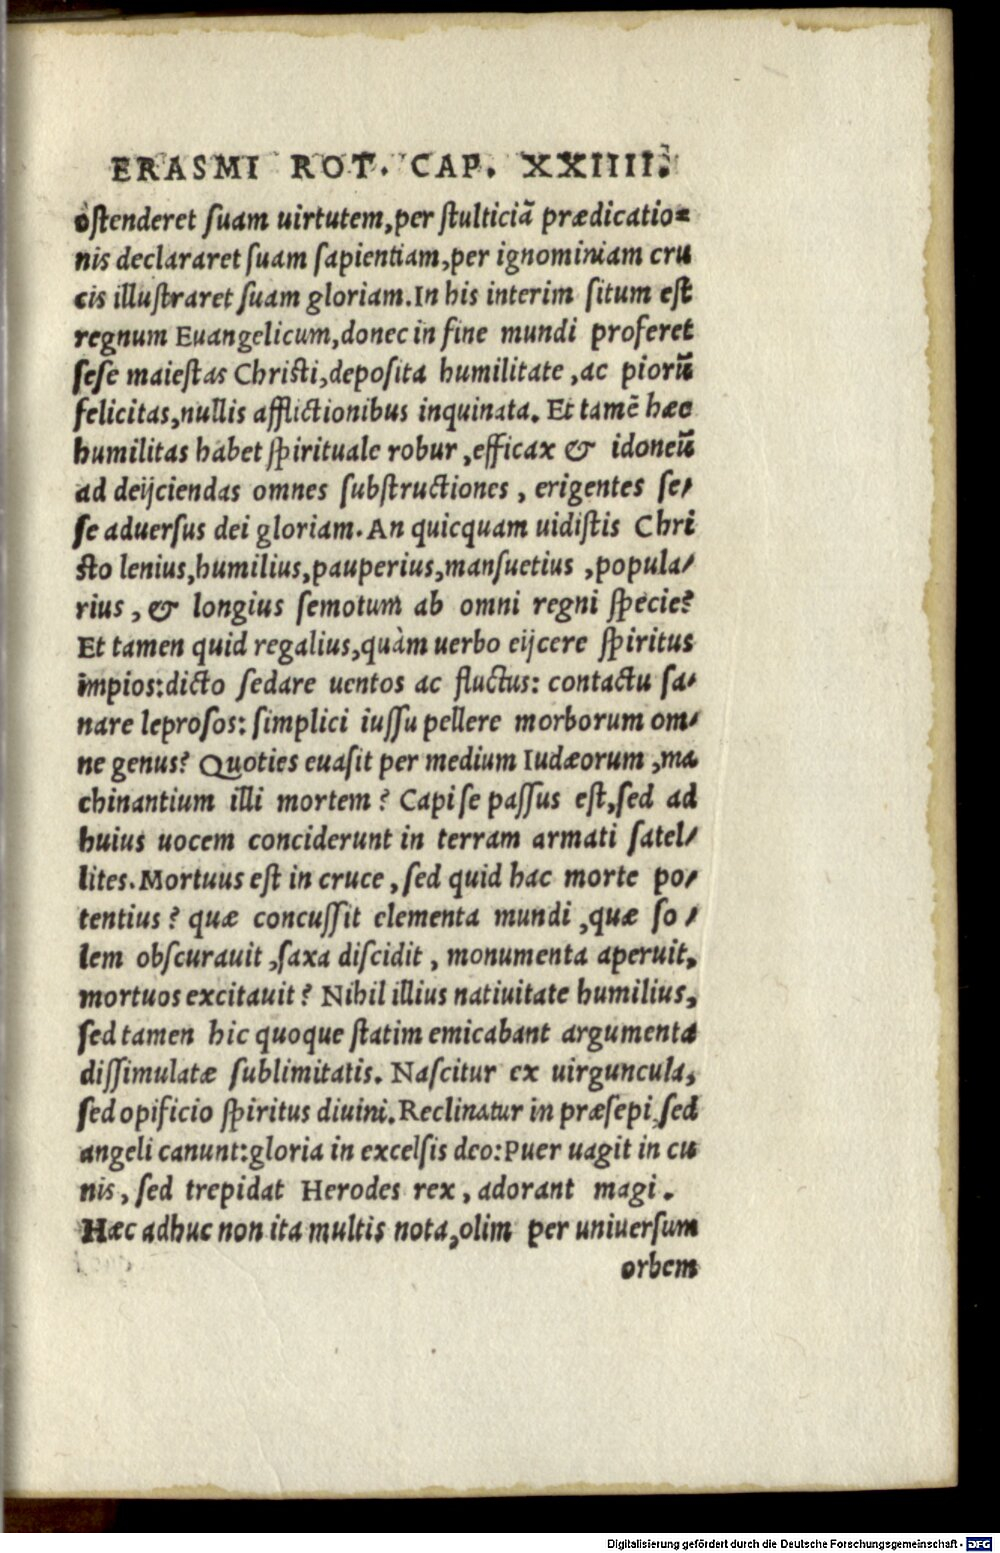 ERASMI ROT. CAP. XXIIII.
ostenderet suam uirtutem, per stulticiā prædicatio=
nis declararet suam sapientiam, per ignominiam cru
cis illustraret suam gloriam. In his interim situm est
regnum Euangelicum, donec in fine mundi proferet
sese maiestas Christi, deposita humilitate, ac piorū
felicitas, nullis afflictionibus inquinata. Et tamē hæc
humilitas habet spirituale robur, efficax & idoneū
ad deijciendas omnes substructiones, erigentes se/
se aduersus dei gloriam. An quicquam uidistis Chri
sto lenius, humilius, pauperius, mansuetius, popula/
rius, & longius semotum ab omni regni specie?
Et tamen quid regalius, quàm uerbo eijcere spiritus
impios: dicto sedare uentos ac fluctus: contactu sa/
nare leprosos: simplici iussu pellere morborum om/
ne genus? Quoties euasit per medium Iudæorum, ma
chinantium illi mortem? Capi se passus est, sed ad
huius uocem conciderunt in terram armati satel/
lites. Mortuus est in cruce, sed quid hac morte po/
tentius? quæ concussit elementa mundi, quæ so/
lem obscurauit, saxa discidit, monumenta aperuit,
mortuos excitauit? Nihil illius natiuitate humilius,
sed tamen hic quoque statim emicabant argumenta
dissimulatæ sublimitatis. Nascitur ex uirguncula,
sed opificio spiritus diuini. Reclinatur in præsepi, sed
angeli canunt: gloria in excelsis deo: Puer uagit in cu
nis, sed trepidat Herodes rex, adorant magi.
Hæc adhuc non ita multis nota, olim per uniuersum
orbem
Digitalisierung gefördert durch die Deutsche Forschungsgemeinschaft - DFG